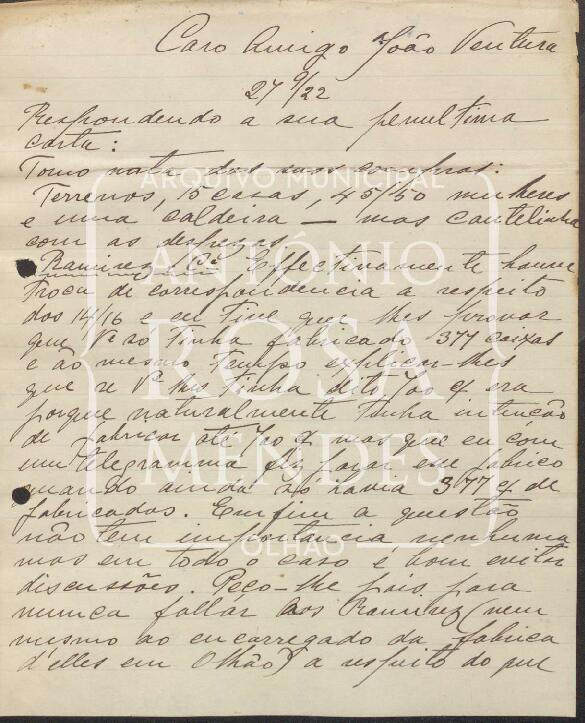 Caro Amigo João Ventura
27 9/22
Respondendo a sua penultima
carta:
Tomo nota das suas compras:
Terrenos, 15 casas, 45/50 mulheres
e uma caldeira — mas cautelinha
com as despezas.
Ramirez & Cª. Effectivamente houve
troca de correspondencia a respeito
dos 14/16 e eu tive que lhes provar
que Vª so tinha fabricado 377 caixas
e ao mesmo tempo explicar-lhes
que se Vª lhes tinha dito 700 era
porque naturalmente tinha intenção
de fabricar até 700 mas que eu com
um telegramma fiz parar em fabrico
quando ainda só havia 377 de
fabricados. Em fim a questão
não tem importancia nenhuma
mas em todo o caso é bom evitar
discussões. Peço-lhe pois para
nunca fallar aos Ramirez (nem
mesmo ao encarregado da fabrica
d'elles em Olhão) a respeito do que
ARQUIVO MUNICIPAL
ANTÓNIO
ROSA
MENDES
OLHÃO